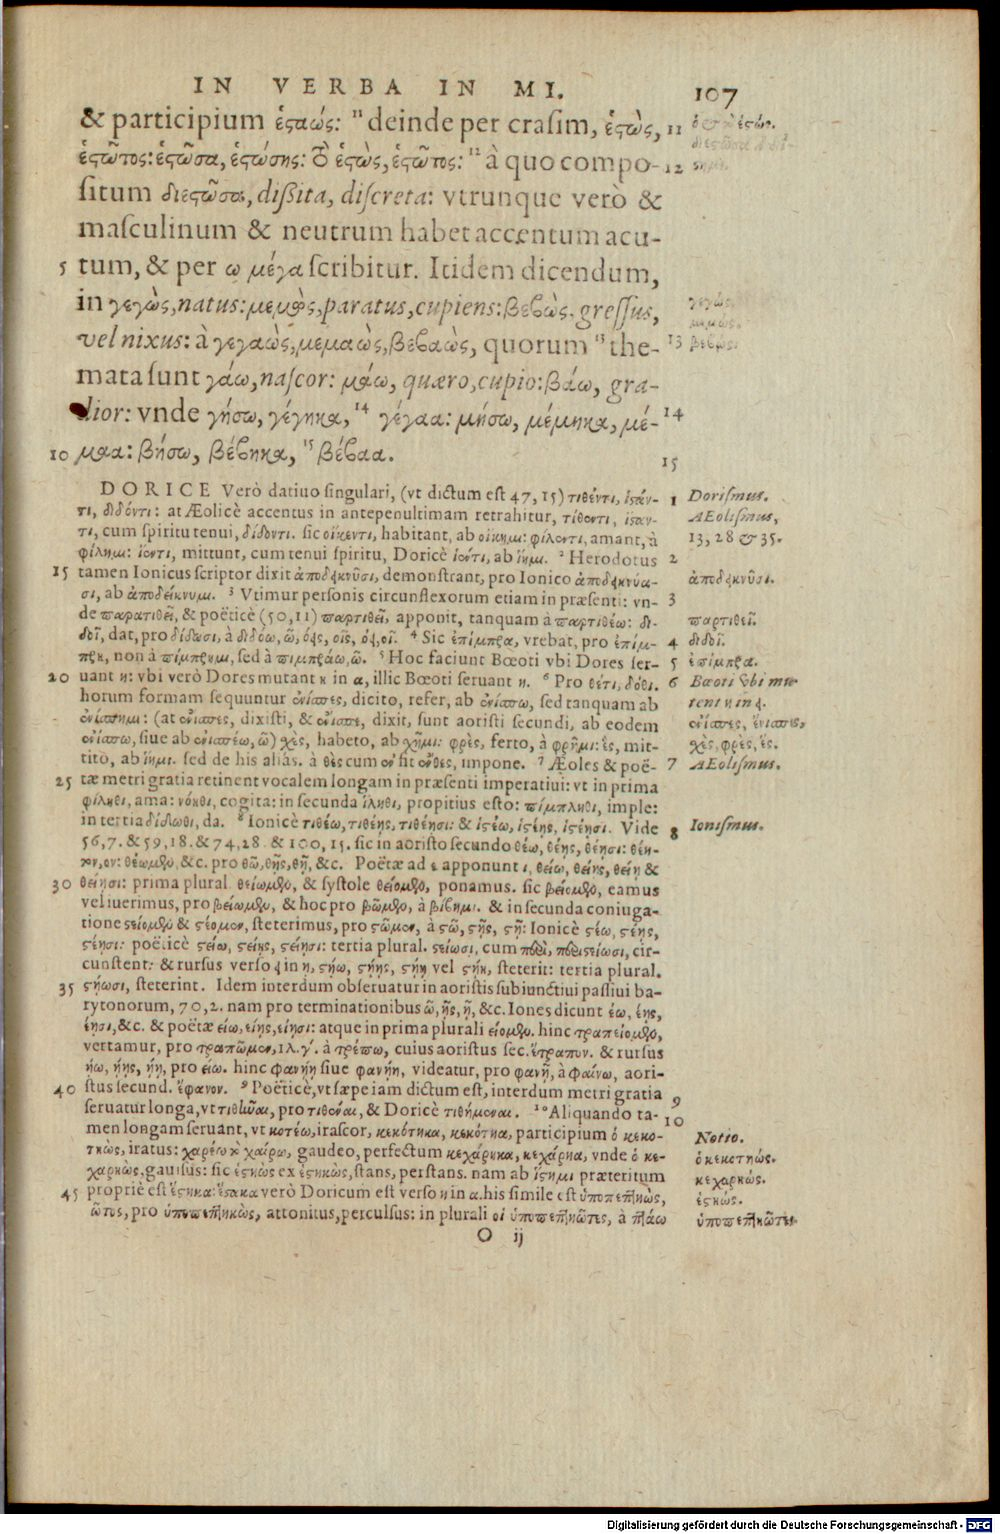 IN VERBA IN MI. 107
& participium ἑσταώς: ¹¹ deinde per crasim, ἑστὼς, 11
ἑστῶτος: ἑστῶσα, ἑστώσης: τὸ ἑστὼς, ἑστῶτος: ¹² à quo compo- 12
ſitum διεστῶσα, diſsita, diſcreta: vtrunque verò &
maſculinum & neutrum habet accentum acu-
5 tum, & per ω μέγα ſcribitur. Itidem dicendum,
in γεγὼς, natus: μεμὼς, paratus, cupiens: βεβὼς, greſſus,
vel nixus: à γεγαὼς, μεμαὼς, βεβαὼς, quorum ¹³ the- 13 βεβώς.
mata ſunt γάω, naſcor: μάω, quæro, cupio: βάω, gra-
dior: vnde γήσω, γέγηκα, ¹⁴ γέγαα: μήσω, μέμηκα, μέ- 14
10 μαα: βήσω, βέβηκα, ¹⁵ βέβαα. 15
DORICE Verò datiuo ſingulari, (vt dictum eſt 47, 15) τιθέντι, ἱστάν- 1 Doriſmus.
τι, διδόντι: at Æolicè accentus in antepenultimam retrahitur, τίθεντι, ἵσταν- AEoliſmus,
τι, cum ſpiritu tenui, δίδοντι. ſic οἴκεντι, habitant, ab οἴκημι: φίλεντι, amant, à 13, 28 & 35.
φίλημι: ἵεντι, mittunt, cum tenui ſpiritu, Doricè ἱέντι, ab ἵημι. ² Herodotus 2
15 tamen Ionicus ſcriptor dixit ἀποδεικνῦσι, demonſtrant, pro Ionico ἀποδεικνύα- ἀποδεικνῦσι.
σι, ab ἀποδείκνυμι. ³ Vtimur perſonis circunflexorum etiam in præſenti: vn- 3
de παρατιθεῖ, & poëticè (50, 11) παρτιθεῖ, apponit, tanquam à παρτιθέω: δι- παρτιθεῖ.
δοῖ, dat, pro δίδωσι, à διδόω, ῶ, όεις, οῖς, όει, οῖ. ⁴ Sic ἐπίμπρα, vrebat, pro ἐπίμ- 4 διδοῖ.
πρη, non à πίμπρημι, ſed à πιμπράω, ῶ. ⁵ Hoc faciunt Bœoti vbi Dores ſer- 5 ἐπίμπρα.
20 uant η: vbi verò Dores mutant η in α, illic Bœoti ſeruant η. ⁶ Pro θέτι, δόθι. 6 Bœoti vbi mu-
horum formam ſequuntur ἐνίσπες, dicito, refer, ab ἐνίσπω, ſed tanquam ab tent η in ει.
ἐνίσπημι: (at ἔνισπες, dixiſti, & ἔνισπε, dixit, ſunt aoriſti ſecundi, ab eodem ἐνίσπες, ἔνισπες,
ἐνίσπω, ſiue ab ἐνισπέω, ῶ) χὲς, habeto, ab χῆμι: φρὲς, ferto, à φρῆμι: ἓς, mit- χὲς, φρὲς, ἕς.
tito, ab ἵημι. ſed de his aliàs. à θὲς cum ἐν fit ἔνθες, impone. ⁷ Æoles & poë- 7 AEoliſmus.
25 tæ metri gratia retinent vocalem longam in præſenti imperatiui: vt in prima
φίληθι, ama: νόηθι, cogita: in ſecunda ἵληθι, propitius eſto: πίμπληθι, imple:
in tertia δίδωθι, da. ⁸ Ionicè τιθέω, τιθέῃς, τιθέῃσι: & ἱστέω, ἱστέῃς, ἱστέῃσι. Vide 8 Ioniſmus.
56, 7. & 59, 18. & 74, 28. & 100, 15. ſic in aoriſto ſecundo θέω, θέῃς, θέῃσι: θέη-
τον, ον: θέωμεν, &c. pro θῶ, θῇς, θῇ, &c. Poëtæ ad ε apponunt ι, θείω, θείῃς, θείῃ &
30 θείῃσι: prima plural. θείωμεν, & ſyſtole θείομεν, ponamus. ſic βείομεν, eamus
vel iuerimus, pro βείωμεν, & hoc pro βῶμεν, à βίβημι. & in ſecunda coniuga-
tione στείομεν & στέομεν, ſteterimus, pro στῶμεν, à στῶ, στῇς, στῇ: Ionicè στέω, στέῃς,
στέῃσι: poëticè στείω, στείῃς, στείῃσι: tertia plural. στείωσι, cum περὶ, περιστείωσι, cir-
cunſtent: & rursus verſo ει in η, στήω, στήῃς, στήῃ vel στήη, ſteterit: tertia plural.
35 στήωσι, ſteterint. Idem interdum obſeruatur in aoriſtis ſubiunctiui paſſiui ba-
rytonorum, 70, 2. nam pro terminationibus ῶ, ῇς, ῇ, &c. Iones dicunt έω, έῃς,
έῃσι, &c. & poëtæ είω, είῃς, είῃσι: atque in prima plurali είομεν. hinc τραπείομεν,
vertamur, pro τραπῶμεν, ιλ. γ΄. à τρέπω, cuius aoriſtus ſec. ἔτραπον. & rursus
ήω, ήῃς, ήῃ, pro είω. hinc φανήῃ ſiue φανήη, videatur, pro φανῇ, à φαίνω, aori-
40 ſtus ſecund. ἔφανον. ⁹ Poëticè, vt ſæpe iam dictum eſt, interdum metri gratia 9
ſeruatur longa, vt τιθῆναι, pro τιθέναι, & Doricè τιθήμεναι. ¹⁰ Aliquando ta- 10
men longam ſeruant, vt κοτέω, iraſcor, κεκότηκα, κεκότηα, participium ὁ κεκο- Notio.
τηὼς, iratus: χαρέω & χαίρω, gaudeo, perfectum κεχάρηκα, κεχάρηα, vnde ὁ κε- ὁ κεκοτηώς.
χαρηὼς, gauiſus: ſic ἑστηὼς ex ἑστηκὼς, ſtans, perſtans. nam ab ἵστημι præteritum κεχαρηώς.
45 propriè eſt ἕστηκα: ἕστακα verò Doricum eſt verſo η in α. his ſimile eſt ὑποπεπτηὼς, ἑστηώς.
ῶτος, pro ὑποπεπτηκὼς, attonitus, perculſus: in plurali οἱ ὑποπεπτηῶτες, à πτάω ὑποπεπτηῶτες.
O ij